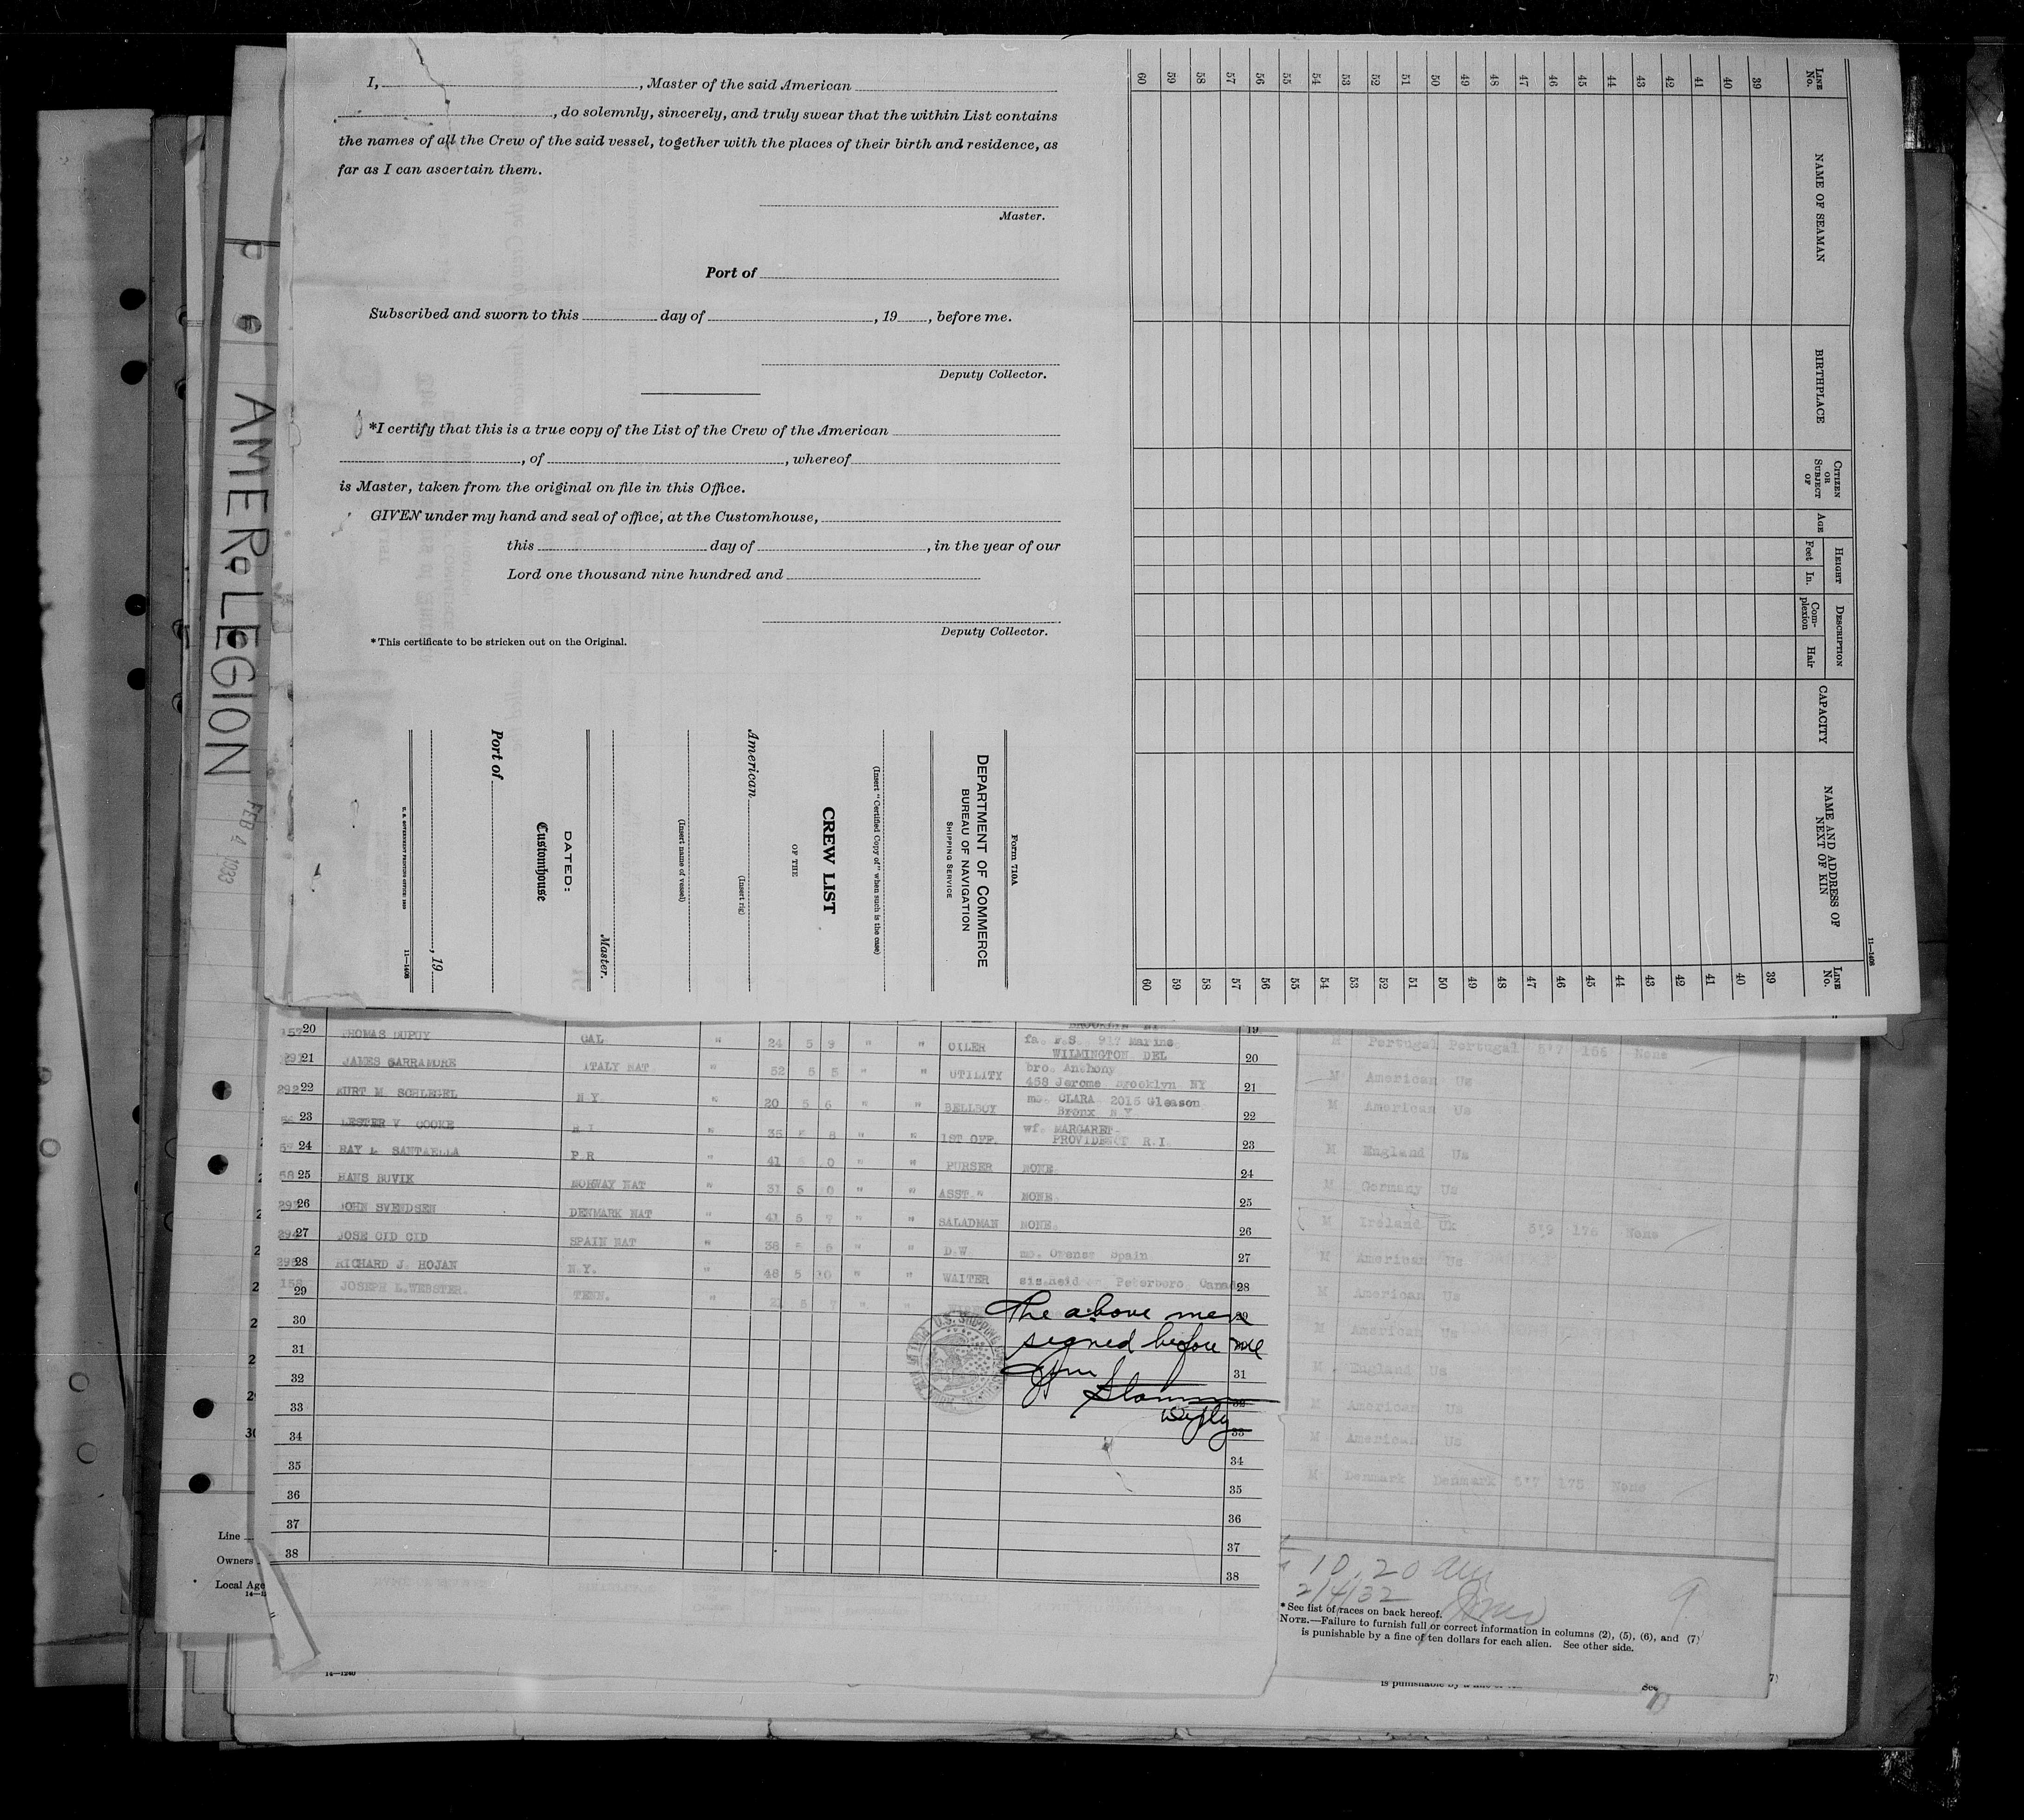 I, , Master of the said American
, do solemnly, sincerely, and truly swear that the within List contains
the names of all the Crew of the said vessel, together with the places of their birth and residence, as
far as I can ascertain them.
Master.
Port of
Subscribed and sworn to this day of , 19 , before me.
Deputy Collector.
*I certify that this is a true copy of the List of the Crew of the American
, of , whereof
is Master, taken from the original on file in this Office.
GIVEN under my hand and seal of office, at the Customhouse,
this day of , in the year of our
Lord one thousand nine hundred and
Deputy Collector.
*This certificate to be stricken out on the Original.
Form 710A
DEPARTMENT OF COMMERCE
BUREAU OF NAVIGATION
SHIPPING SERVICE
(Insert "Certified Copy of" when such is the case)
CREW LIST
OF THE
American
(Insert rig)
(Insert name of vessel)
Master.
DATED:
Customhouse
Port of
, 19
U.S. GOVERNMENT PRINTING OFFICE
11—1408
LINE No. NAME OF SEAMAN BIRTHPLACE CITIZEN OR SUBJECT OF AGE HEIGHT Feet In. DESCRIPTION Complexion Hair CAPACITY NAME AND ADDRESS OF NEXT OF KIN LINE No.
11—1408
39 39
40 40
41 41
42 42
43 43
44 44
45 45
46 46
47 47
48 48
49 49
50 50
51 51
52 52
53 53
54 54
55 55
56 56
57 57
58 58
59 59
60 60
AMER. LEGION
FEB 4 1933
BROOKLYN NY 19
20 THOMAS DUPUY CAL " 24 5 9 " " OILER fa. F.S. 917 Marine
WILMINGTON DEL 20
21 JAMES GARRAMORE ITALY NAT " 52 5 5 " " UTILITY bro. Anthony
458 Jerome Brooklyn NY 21
22 KURT M SCHLEGEL N Y " 20 5 6 " " BELLBOY mo. CLARA 2015 Gleason
Bronx N Y 22
23 LESTER V COOKE R I " 35 8 " " 1ST OFF. wf. MARGARET
PROVIDENCT R.I. 23
24 RAY L SANTAELLA P R " 41 0 " " PURSER NONE 24
25 HANS BUVIK NORWAY NAT " 31 5 " " ASST " NONE 25
26 JOHN SVENDSEN DENMARK NAT " 41 5 7 " " SALADMAN NONE. 26
27 JOSE CID CID SPAIN NAT " 38 5 5 " " D.W. mo. Orense Spain 27
28 RICHARD J HOJAN N.Y. " 48 5 10 " " WAITER sis Peterboro Canada 28
29 JOSEPH L.WEBSTER. TENN. " 21 5 7 " "
The above men
signed before me
Stamm
Dep
30
31 31
32 32
33 33
34 34
35 35
36 36
37 37
38 38
M Portugal Portugal 5'7 155 None
M American Us
M American Us
M England Us
M Germany Us
M Ireland Uk 5'9 176 None
M American Us
M American Us
M American Us
M England Us
M American Us
M American Us
M Denmark Denmark 5'7 175 None
10.20 am
2/4/32
9
*See list of races on back hereof.
NOTE.—Failure to furnish full or correct information in columns (2), (5), (6), and (7)
is punishable by a fine of ten dollars for each alien. See other side.
Line
Owners
Local Age
14—1240
See